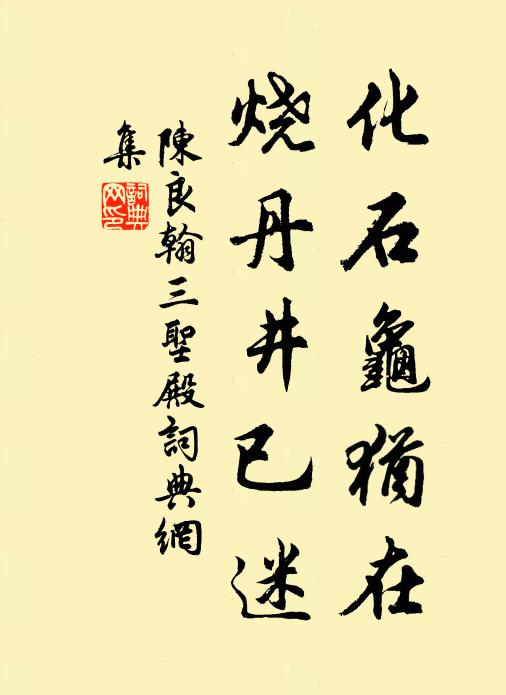 化石龜猶在
烧丹井已迷
陳良翰三聖殿詞典網
集
詞典
网印